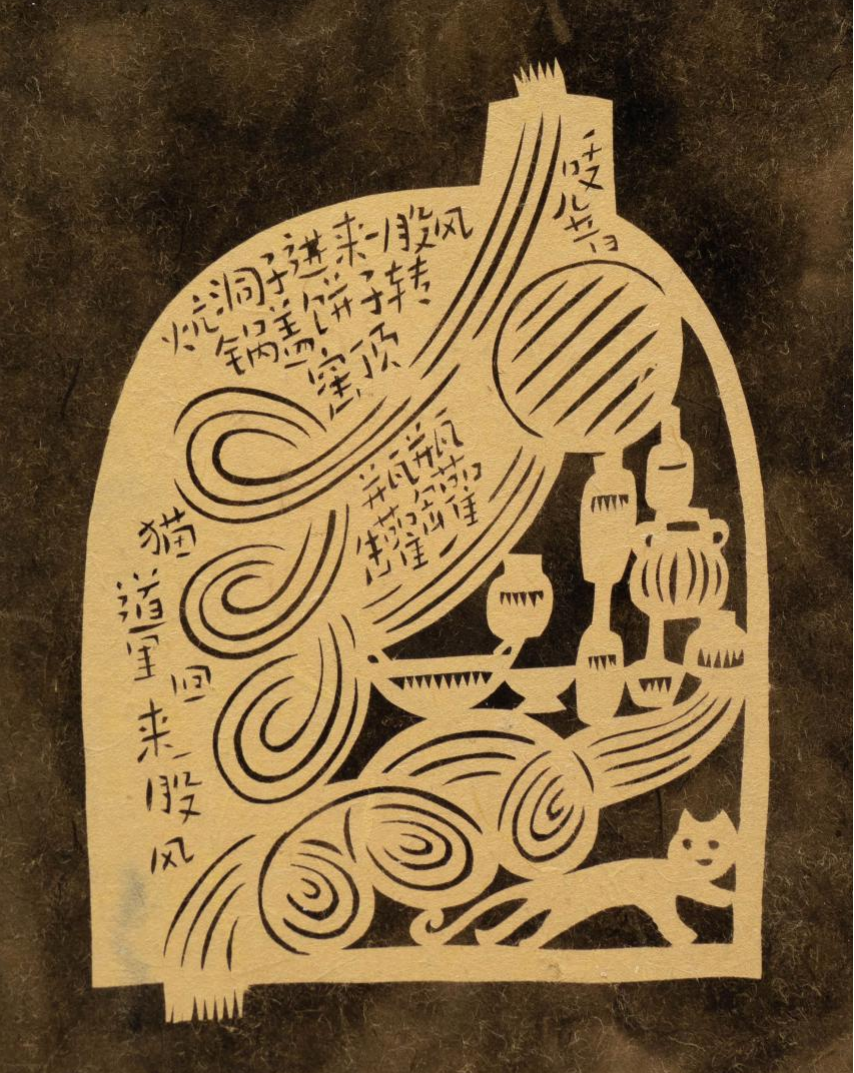 吱
炕洞子进来一股风
锅盖饼子转
窑顶
瓶瓶
罐罐
猫道里回来股风